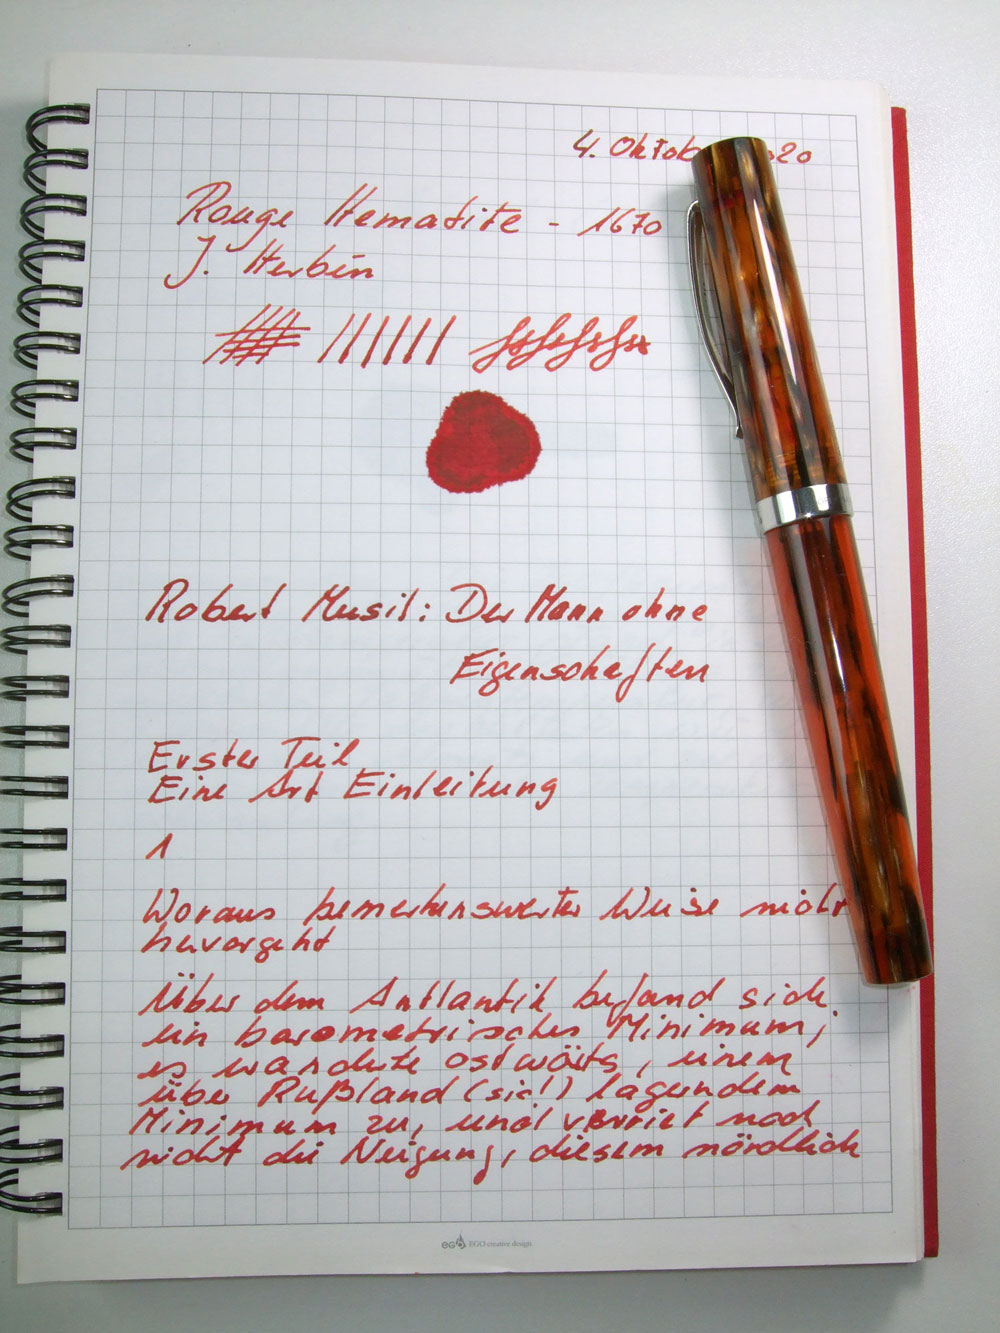 4. Oktob 20
Rouge Hematite - 1670
J. Herbin
Robert Musil: Der Mann ohne
Eigenschaften
Erster Teil
Eine Art Einleitung
1
Woraus bemerkenswerter Weise nicht
hervorgeht
Über dem Antlantik befand sich
ein barometrisches Minimum;
es wanderte ostwärts, einem
über Rußland (sic!) lagerndem
Minimum zu, und verriet noch
nicht die Neigung, diesem nördlich
EGO EGO creative design